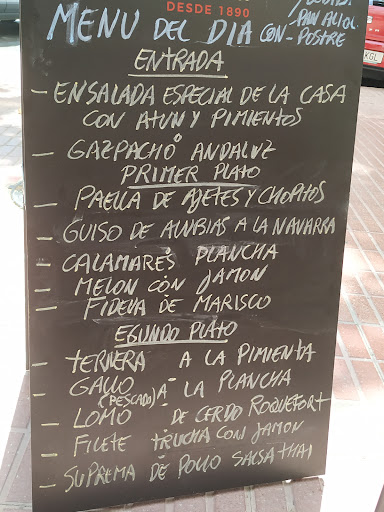 DESDE 1890
BEBIDA
PAN ALIOL
MENU DEL DIA CON - POSTRE
ENTRADA
- ENSALADA ESPECIAL DE LA CASA
CON ATUN Y PIMIENTOS
- GAZPACHO ANDALUZ
PRIMER PLATO
- PAELLA DE AJETES Y CHOPITOS
- GUISO DE ALUBIAS A LA NAVARRA
- CALAMARES PLANCHA
- MELON CON JAMON
- FIDEUA DE MARISCO
EGUNDO PLATO
- TERNERA A LA PIMIENTA
- GALLO (PESCADO) A LA PLANCHA
- LOMO DE CERDO ROQUEFORT
- FILETE TRUCHA CON JAMON
- SUPREMA DE POLLO SALSA THAI